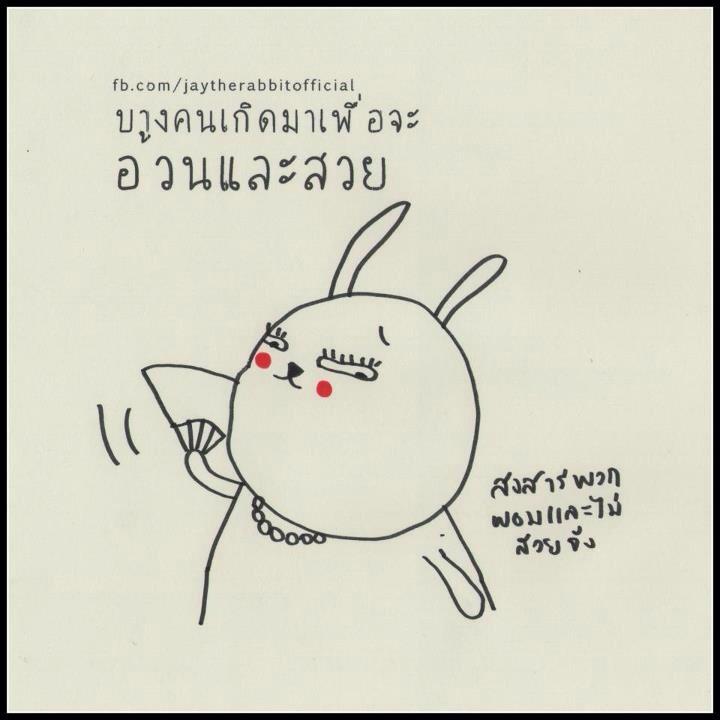 fb.com/jaytherabbitofficial
บางคนเกิดมาเพื่อจะ
อ้วนและสวย
สงสารพวก
ผอมและไม่
สวยจัง